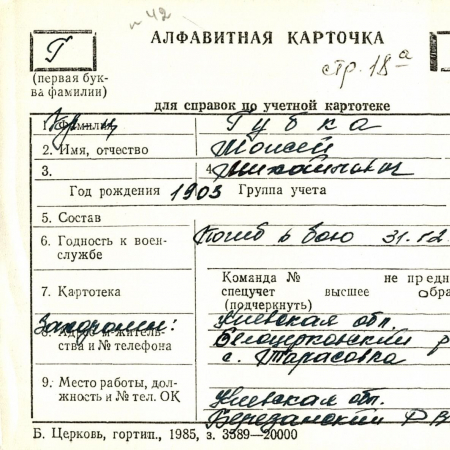 п 42
АЛФАВИТНАЯ КАРТОЧКА
Г
стр. 18а
(первая бук-
ва фамилии)
для справок по учетной картотеке
Кр-ц
1. Фамилия Губка
2. Имя, отчество Моисей
3. 4. Михайлович
Год рождения 1903 Группа учета
5. Состав
6. Годность к воен- Погиб в бою 31.12.
службе
Команда № не предн
7. Картотека спецучет высшее обра
(подчеркнуть)
Захоронен: Киевская обл.
8. Адрес житель- Белоцерковский р
ства и № телефона с. Тарасовка
9. Место работы, дол-
жность и № тел. ОК Киевская обл.
Березанский РВ
Б. Церковь, гортип., 1985, з. 3389—20000